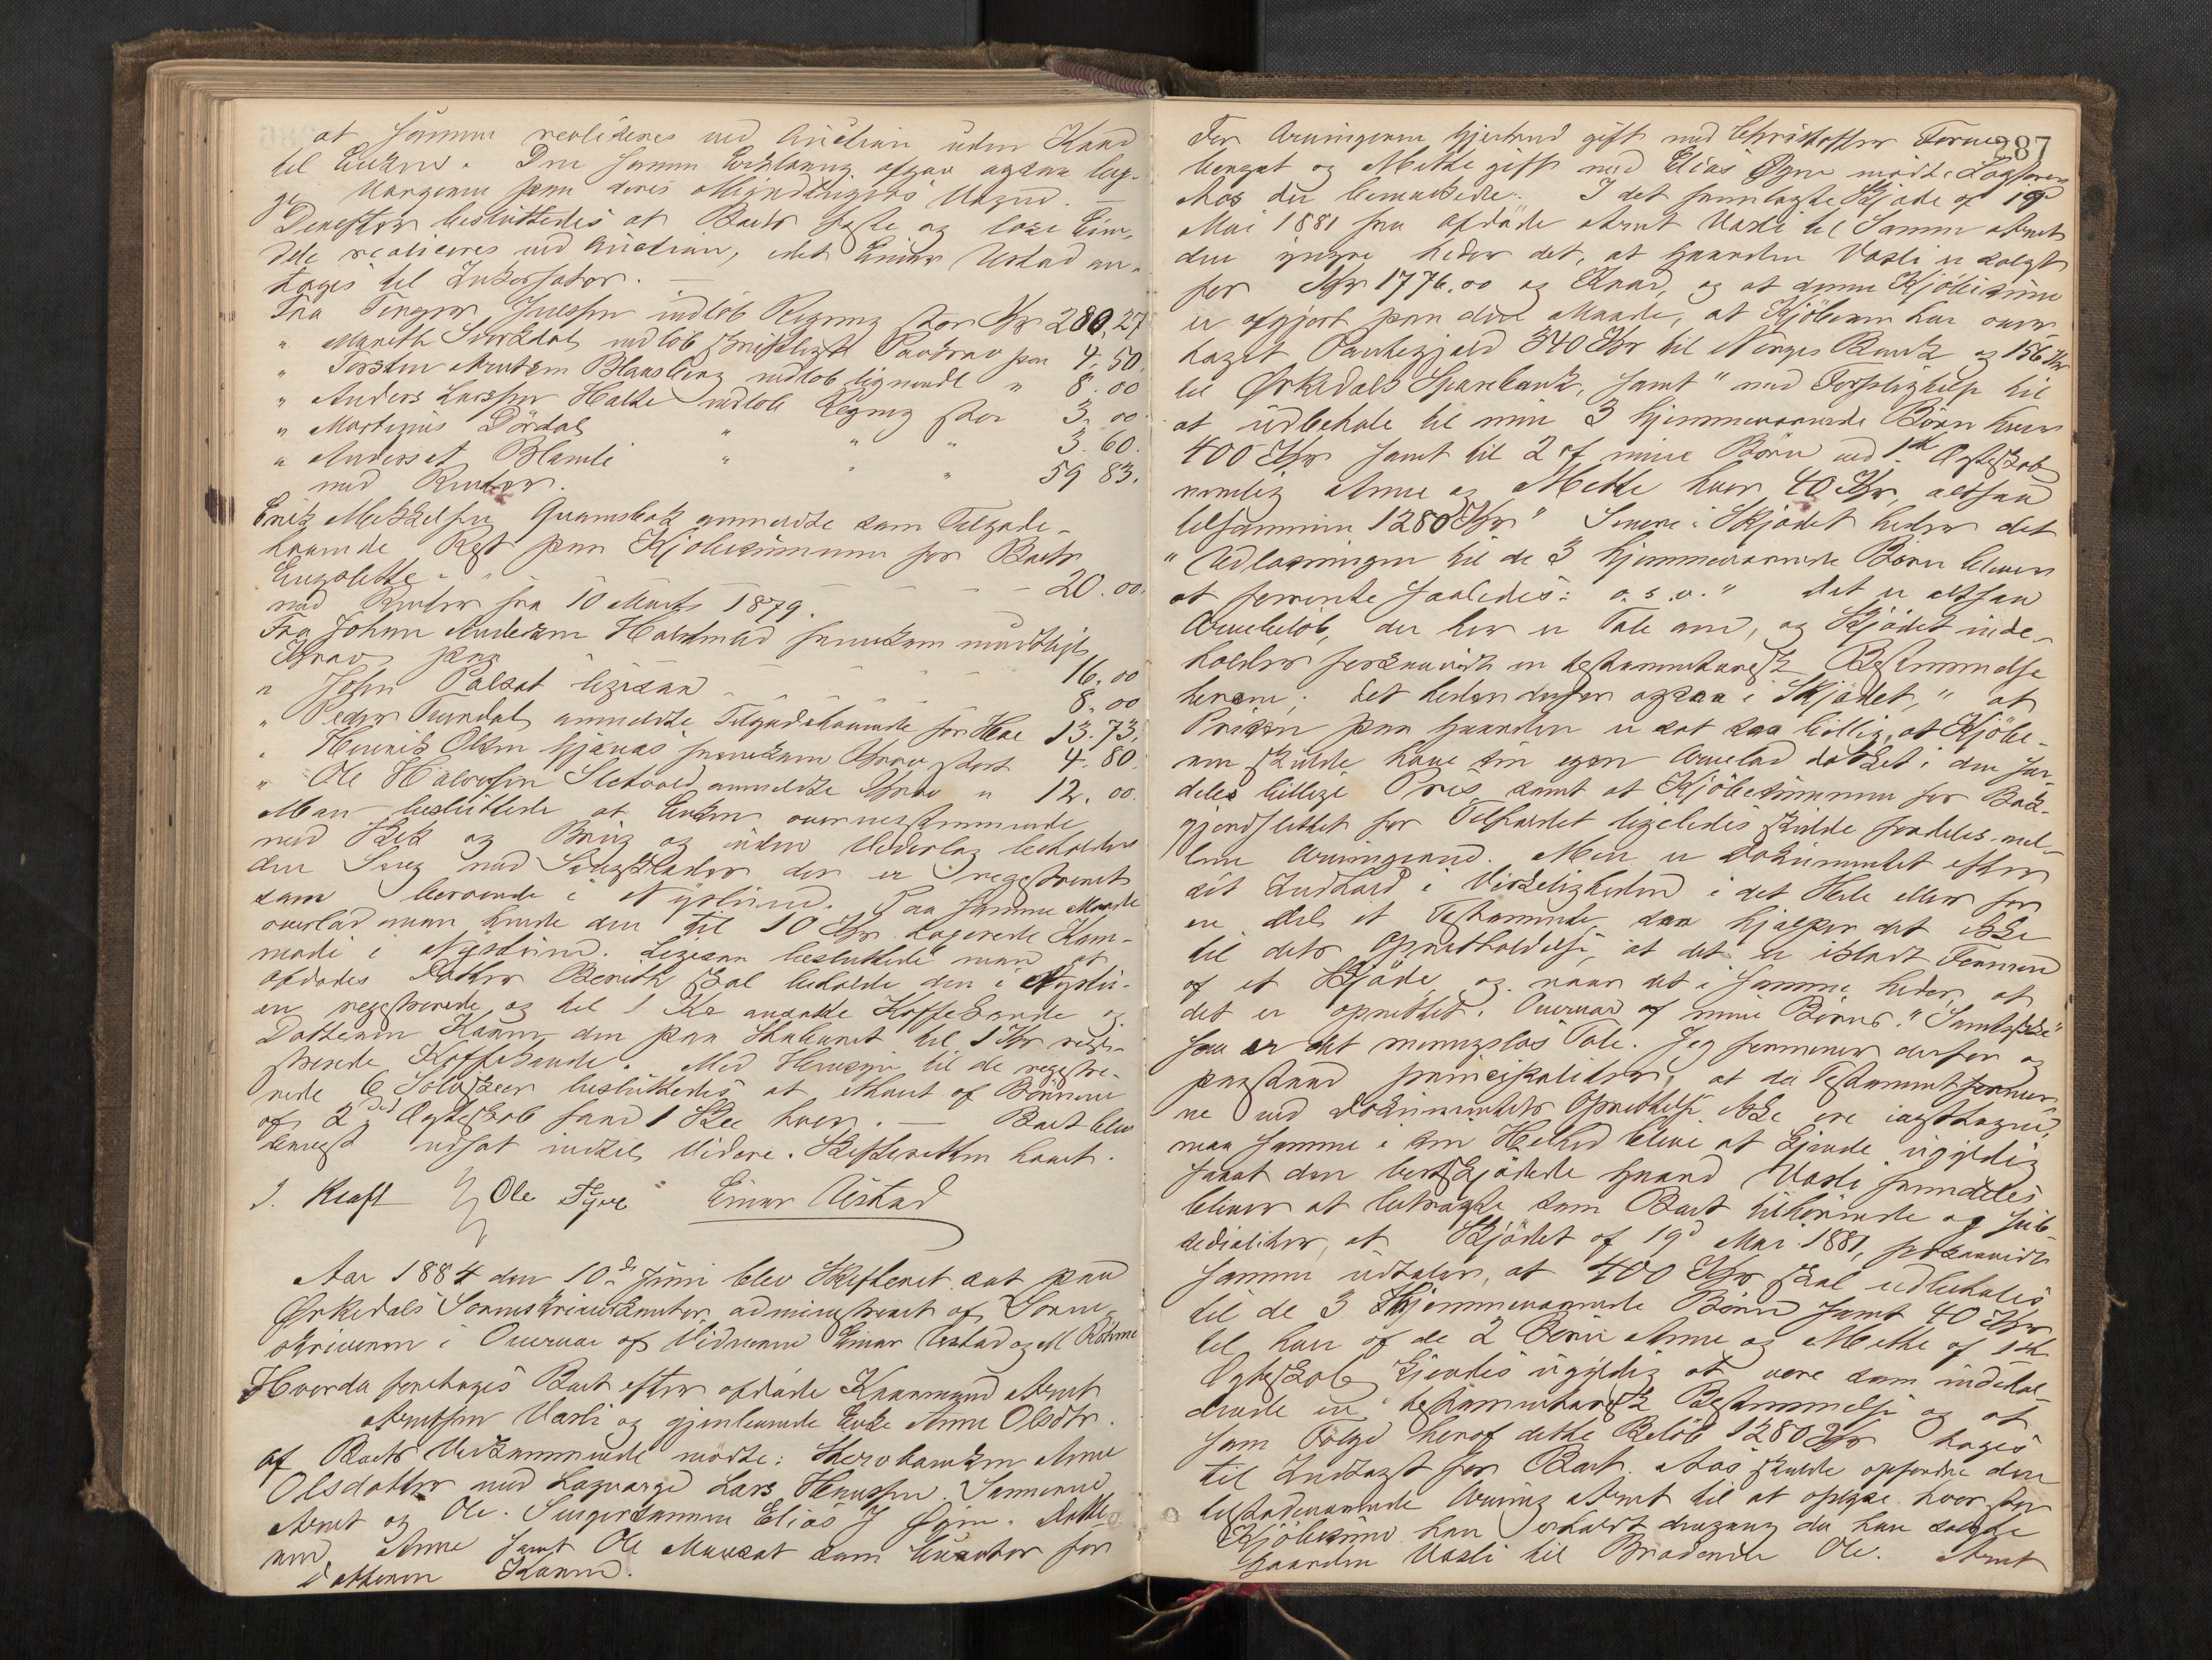 at samme realiseres ved Auction uden Kaad
til Enken. Den samme Erklæring afgav ogsaa 
Værgerne paa deres Myndtlingers Vegne. —
Derefter besluttedes at Boets faste og løse Eien-
dele realiseres ved Auction, idet Einar Ustad an-
toges til Inkassator. —
Fra Julsen indløb Regning stor Kr 280.27
" Marith Svorkdal indløb skriftligt Paakrav paa 4.50.
" Torsten Arntsen Blaasberg indløb lignende " 8.00
" Anders Larssen Halte indløb Regning stor 3.00.
" Martinus Dørdal " " " 3.60.
" Anders Blamli " " " 59 83.
med Renter.
Erik Mikkelsen Qvamsbak anmeldte som Tilgode-
havende Rest paa Kjøbesummen for Boets
Engslette - - - 20.00.
med Renter fra 10 Marts 1879.
Fra Johan Andersen Holstmad fremkom mundtligt
Krav paa 16.00
" John ligesaa - - - - 8.00
" Peder anmeldte Tilgodehavende for Hae 13.73.
" Henrik Olsen Gjønas fremkom Krav stort 4.80.
" Ole Halvorsen Sletvold anmeldte Krav " 12.00.
Man besluttede at Enken overensstemmende
med Skik og Brug og uden Vederlag beholder
den Seng med Sengklæder der er registreret
som beroende i Nystuen. Paa samme Maade
overlod man hende den til 10 Kr taxerede Kom-
mode i Nystuen. Ligesaa besluttede man at
afdødes Datter Berith skal beholde den i Nystu-
en registrerede og til 1 Kr ansatte Kaffekande og
Datteren Karen den paa Stabburet til 1 Kr regi-
strerede Kaffekande. Med Hensyn til de registre-
rede 6 Sølvskeer besluttedes at ethvert af Børnene
af 2det Ægteskab faar 1 Skee hver. — Boet blev
dernæst udsat indtil Videre. Skifteretten hævet.
J. Kraft Ole Einar Ustad
Aar 1884 den 10de Juni blev Skifteret sat paa
Ørkedals Sorenskriverkontor, administreret af Soren-
skriveren i Overvær af Vidnerne Einar Ustad og M Røhme
Hvorda foretages Boet efter afdøde Kaarmand Arnt
Arntsen Vasli og gjenlevende Enke Anne Olsdtr.
Af Boets Vedkommende mødte: Stervboenken Anne
Olsdatter med Lagværge Lars Henriksen. Sønnerne
Arnt og Ole. Svigersønnen Elias J Øyen. Datte-
ren Anne samt Ole som Curator for
Datteren Karen.
287
For Arvingerne Gjertrud gift med Christoffer
og Mette gift med Elias Øyen mødte Lagfører
Aas der bemærkede: I det fremlagte Skjøde af 19d
Mai 1881 fra afdøde Arnt Vasli til Sønnen Arnt
den yngre heder det, at Gaarden Vasli er solgt
for Kr 1776.00 og Kaar, og at denne Kjøbesum
er afgjort paa den Maade, at Kjøberen har over-
taget Pantegjæld 340 Kr til Norges Bank og 156 Kr
til Ørkedals Sparebank, samt "med Forpligtelse til
at udbetale til mine 3 hjemmeværende Børn hver
400 Kr samt til 2 af mine Børn ved 1ste Ægteskab
nemlig Anne og Mette hver 40 Kr, altsaa
tilsammen 1280 Kr" Senere i Skjødet heder det
"Udløsningen til de 3 hjemmeværende Børn bliver
at forrente saaledes: o. s. v." Det er altsaa
Arvebeløb, der her er Tale om, og Skjødet inde-
holder forsaavidt en testamentarisk Bestemmelse
herom; det heder derfor ogsaa i Skjødet, " at
Prisen paa Gaarden er sat saa billig, at Kjøbe-
ren skulde have sin egen Arvelod dækket i den saa-
deles billige Pris, samt at Kjøbesummen for
for Tilfældet ligeledes skulde fordeles mel-
lem Arvingerne. Men er Dokumentet efter
sit Indhold i Virkeligheden i det Hele eller for
en Del et Testamente, saa hjælper det ikke
til dets Opretholdelse, at det er iklædt Formen
af et Skjøde, og naar det i samme heder, at
det er oprettet i Overvær af mine Børns "Samtykke"
saa er det meningsløs Tale. Jeg formener derfor og
paastaar principaliter, at da Testamentsformer-
ne ved Dokumentets Oprettelse ikke ere iagttagne,
maa samme i sin Helhed blive at kjende ugyldig
samt den bortskjødede Gaard Vasli fremdeles
bliver at betragte som Boet tilhørende og sub-
sidialiter, at Skjødet af 19d Mai 1881, forsaavidt
samme udtaler, at 400 Kr skal udbetales
til de 3 hjemmeværende Børn samt 40 Kr
til hver af de 2 Børn Anne og Mette af 1ste
Ægteskab kjendes ugyldig at være som indehol-
dende en testamentarisk Bestemmelse og at
som Følge heraf dette Beløb 1280 Kr tages
til Indtægt for Boet. Aas skulde opfordre den
tilstedeværende Arving Arnt til at opgive hvor stor
Kjøbesum han erholdt dengang da han solgte
Gaarden Vasli til Broderen Ole. Arnt